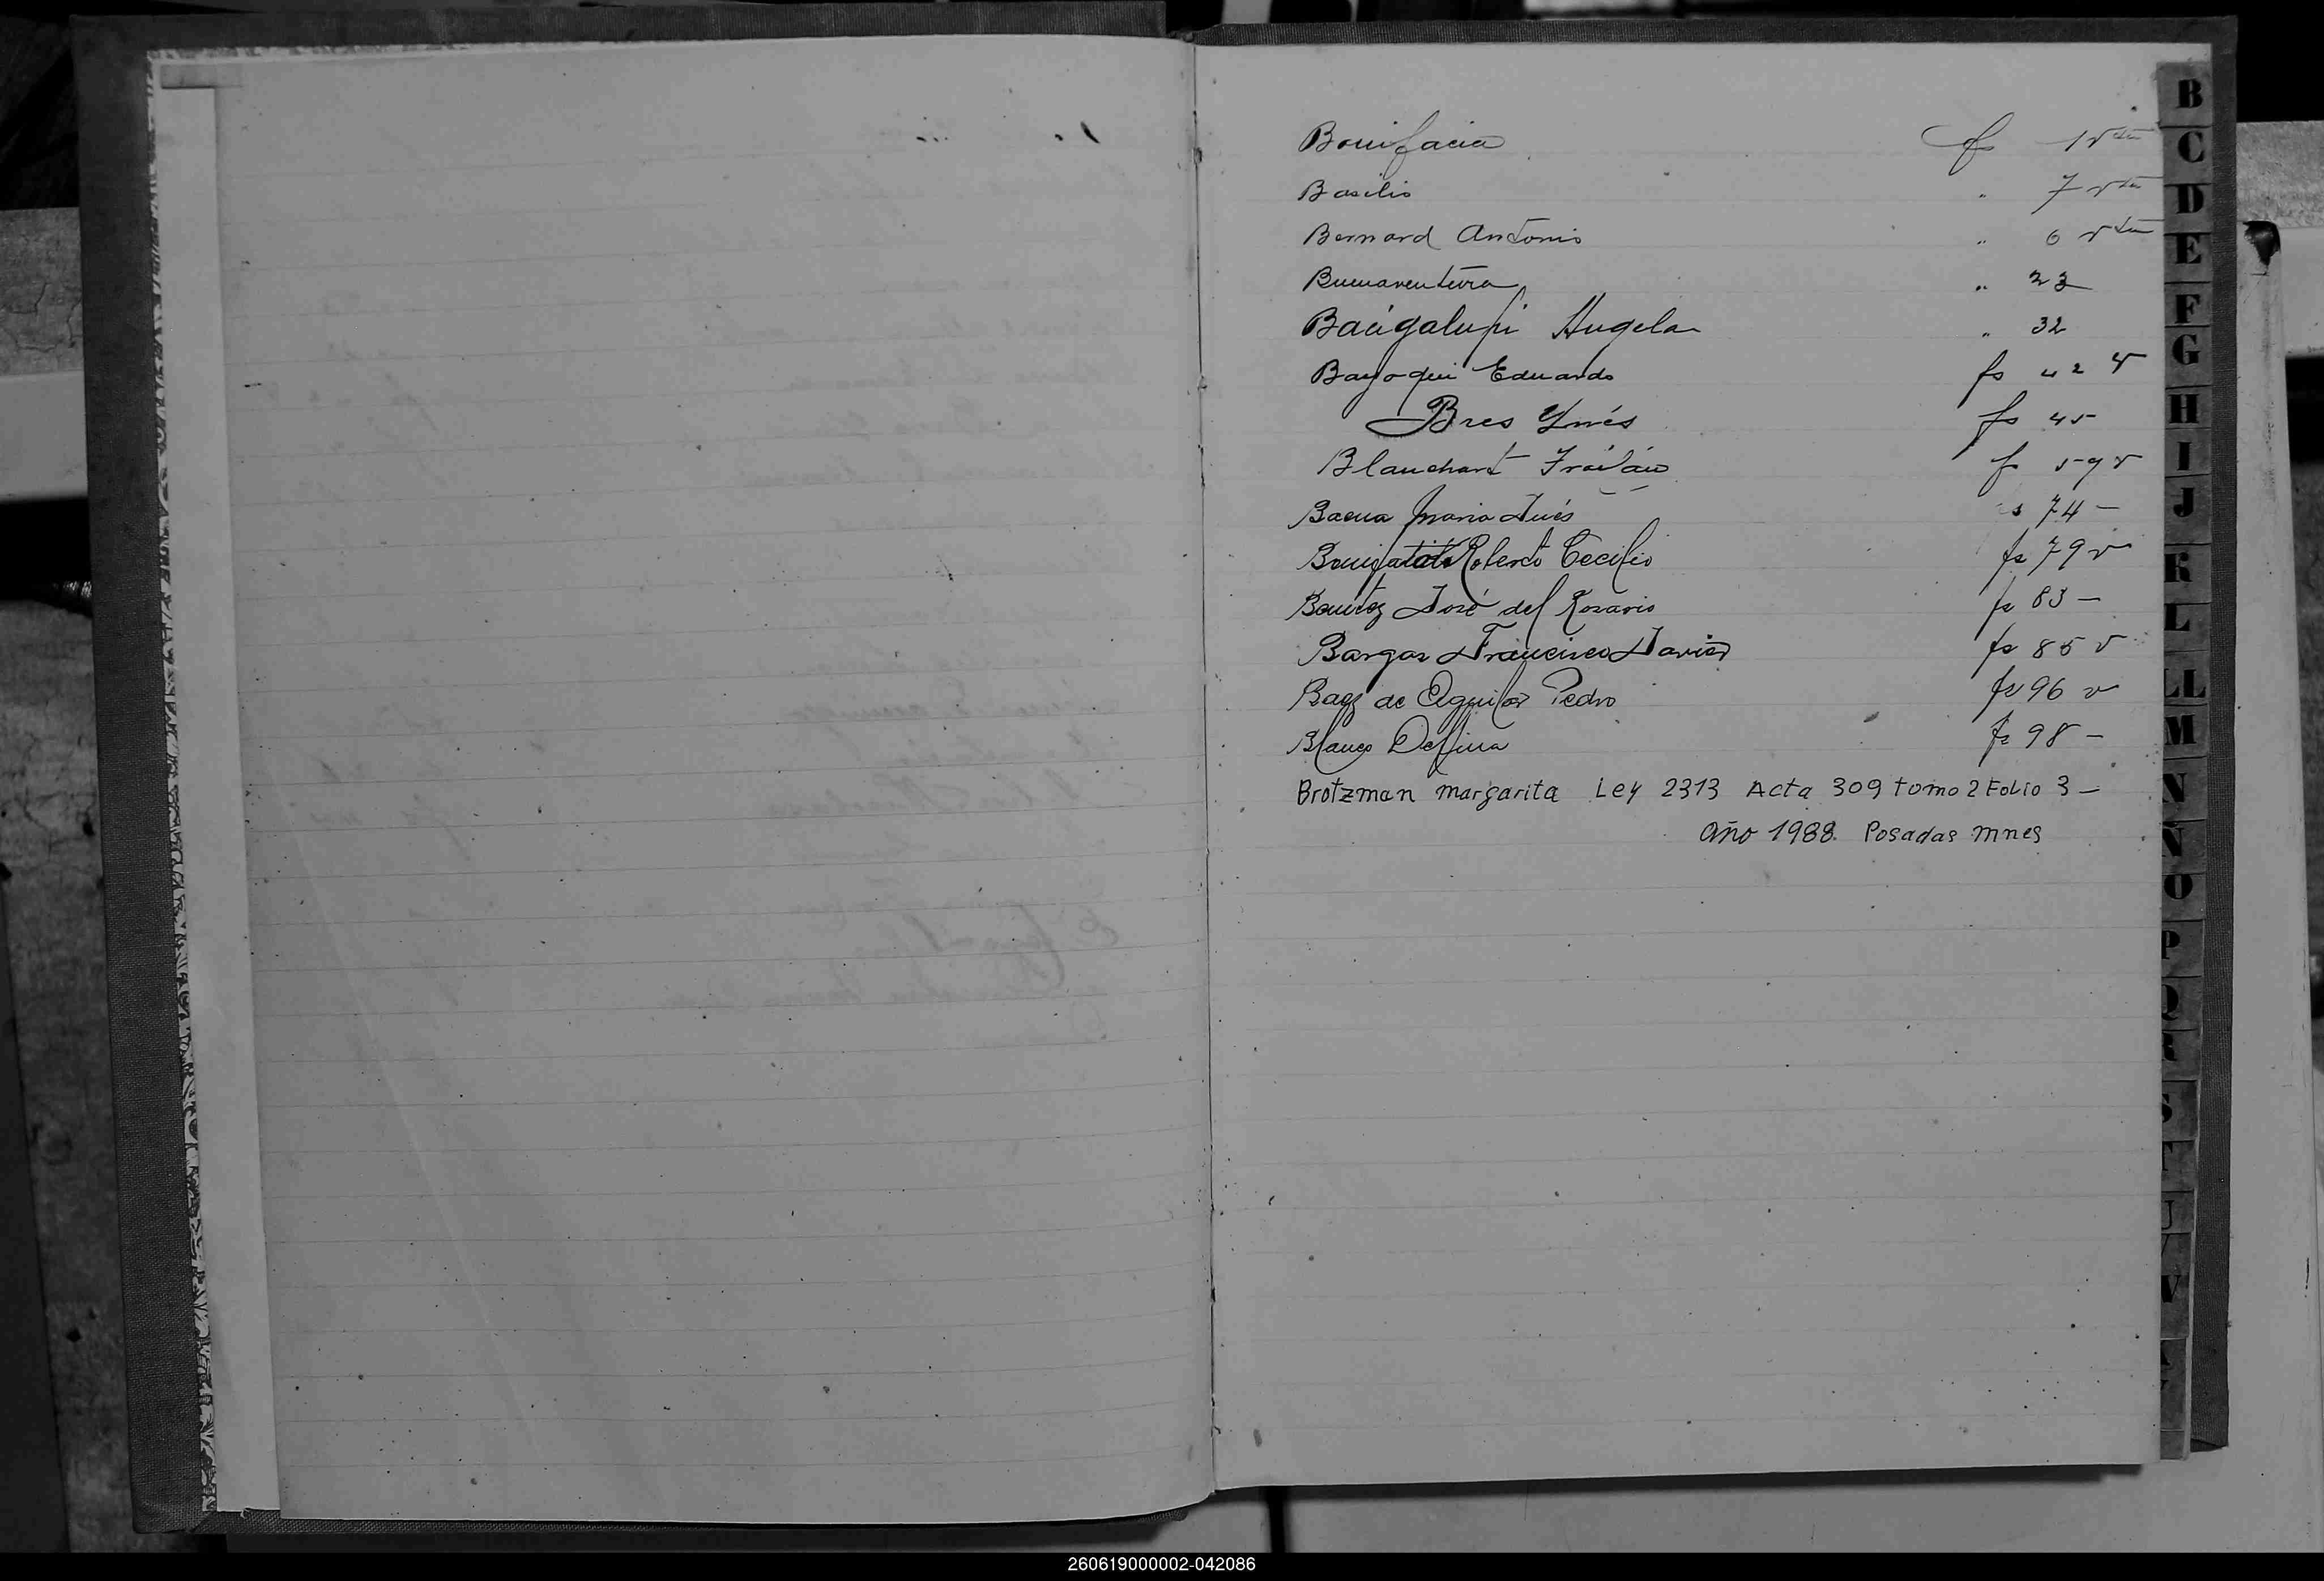 Bonifacia fs 1 vta
Basilio " 7 vta
Bernard Antonio " 6 vta
Buenaventura " 23
Bacigalupi Angela " 32
Bayoqui Eduardo fs 42 v
Bres Ynés fs 45
Blanchart Froilán fs 59 v
Baena Maria Inés fs 74 —
Roberto Cecilio fs 79 v
Benitez José del Rosario fs 83 —
Bargas Francisco Javier fs 85 v
Baez de Aguilar Pedro fs 96 v
Blanco Delfina fs 98 —
Brotzman margarita Ley 2313 Acta 309 tomo 2 Folio 3 —
Año 1988. Posadas mnes
B
C
D
E
F
G
H
I
J
K
L
LL
M
N
Ñ
O
P
Q
S
T
U
V
260619000002-042086